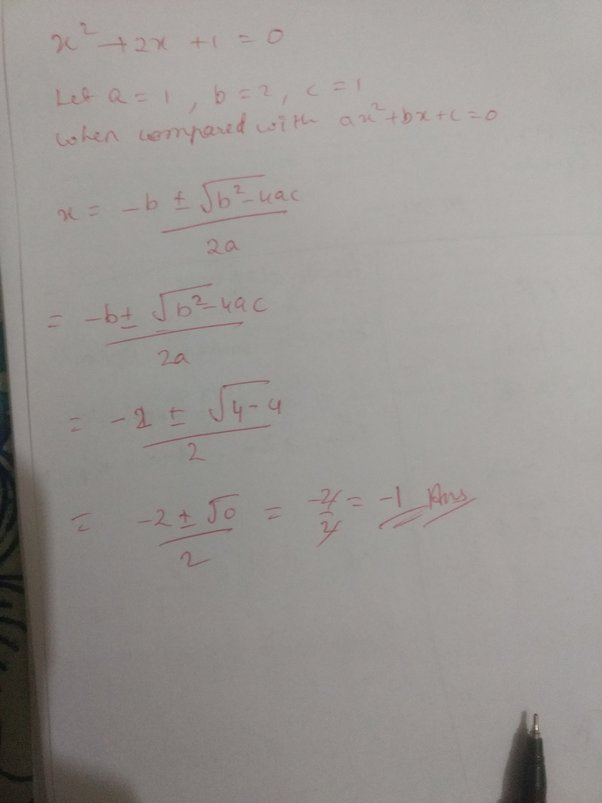 x² + 2x + 1 = 0
Let a = 1, b = 2, c = 1
when compared with ax² + bx + c = 0
x = -b ± √b² - 4ac / 2a
= -b ± √b² - 4ac / 2a
= -2 ± √4 - 4 / 2
= -2 ± √0 / 2 = -2 / 2 = -1 Ans